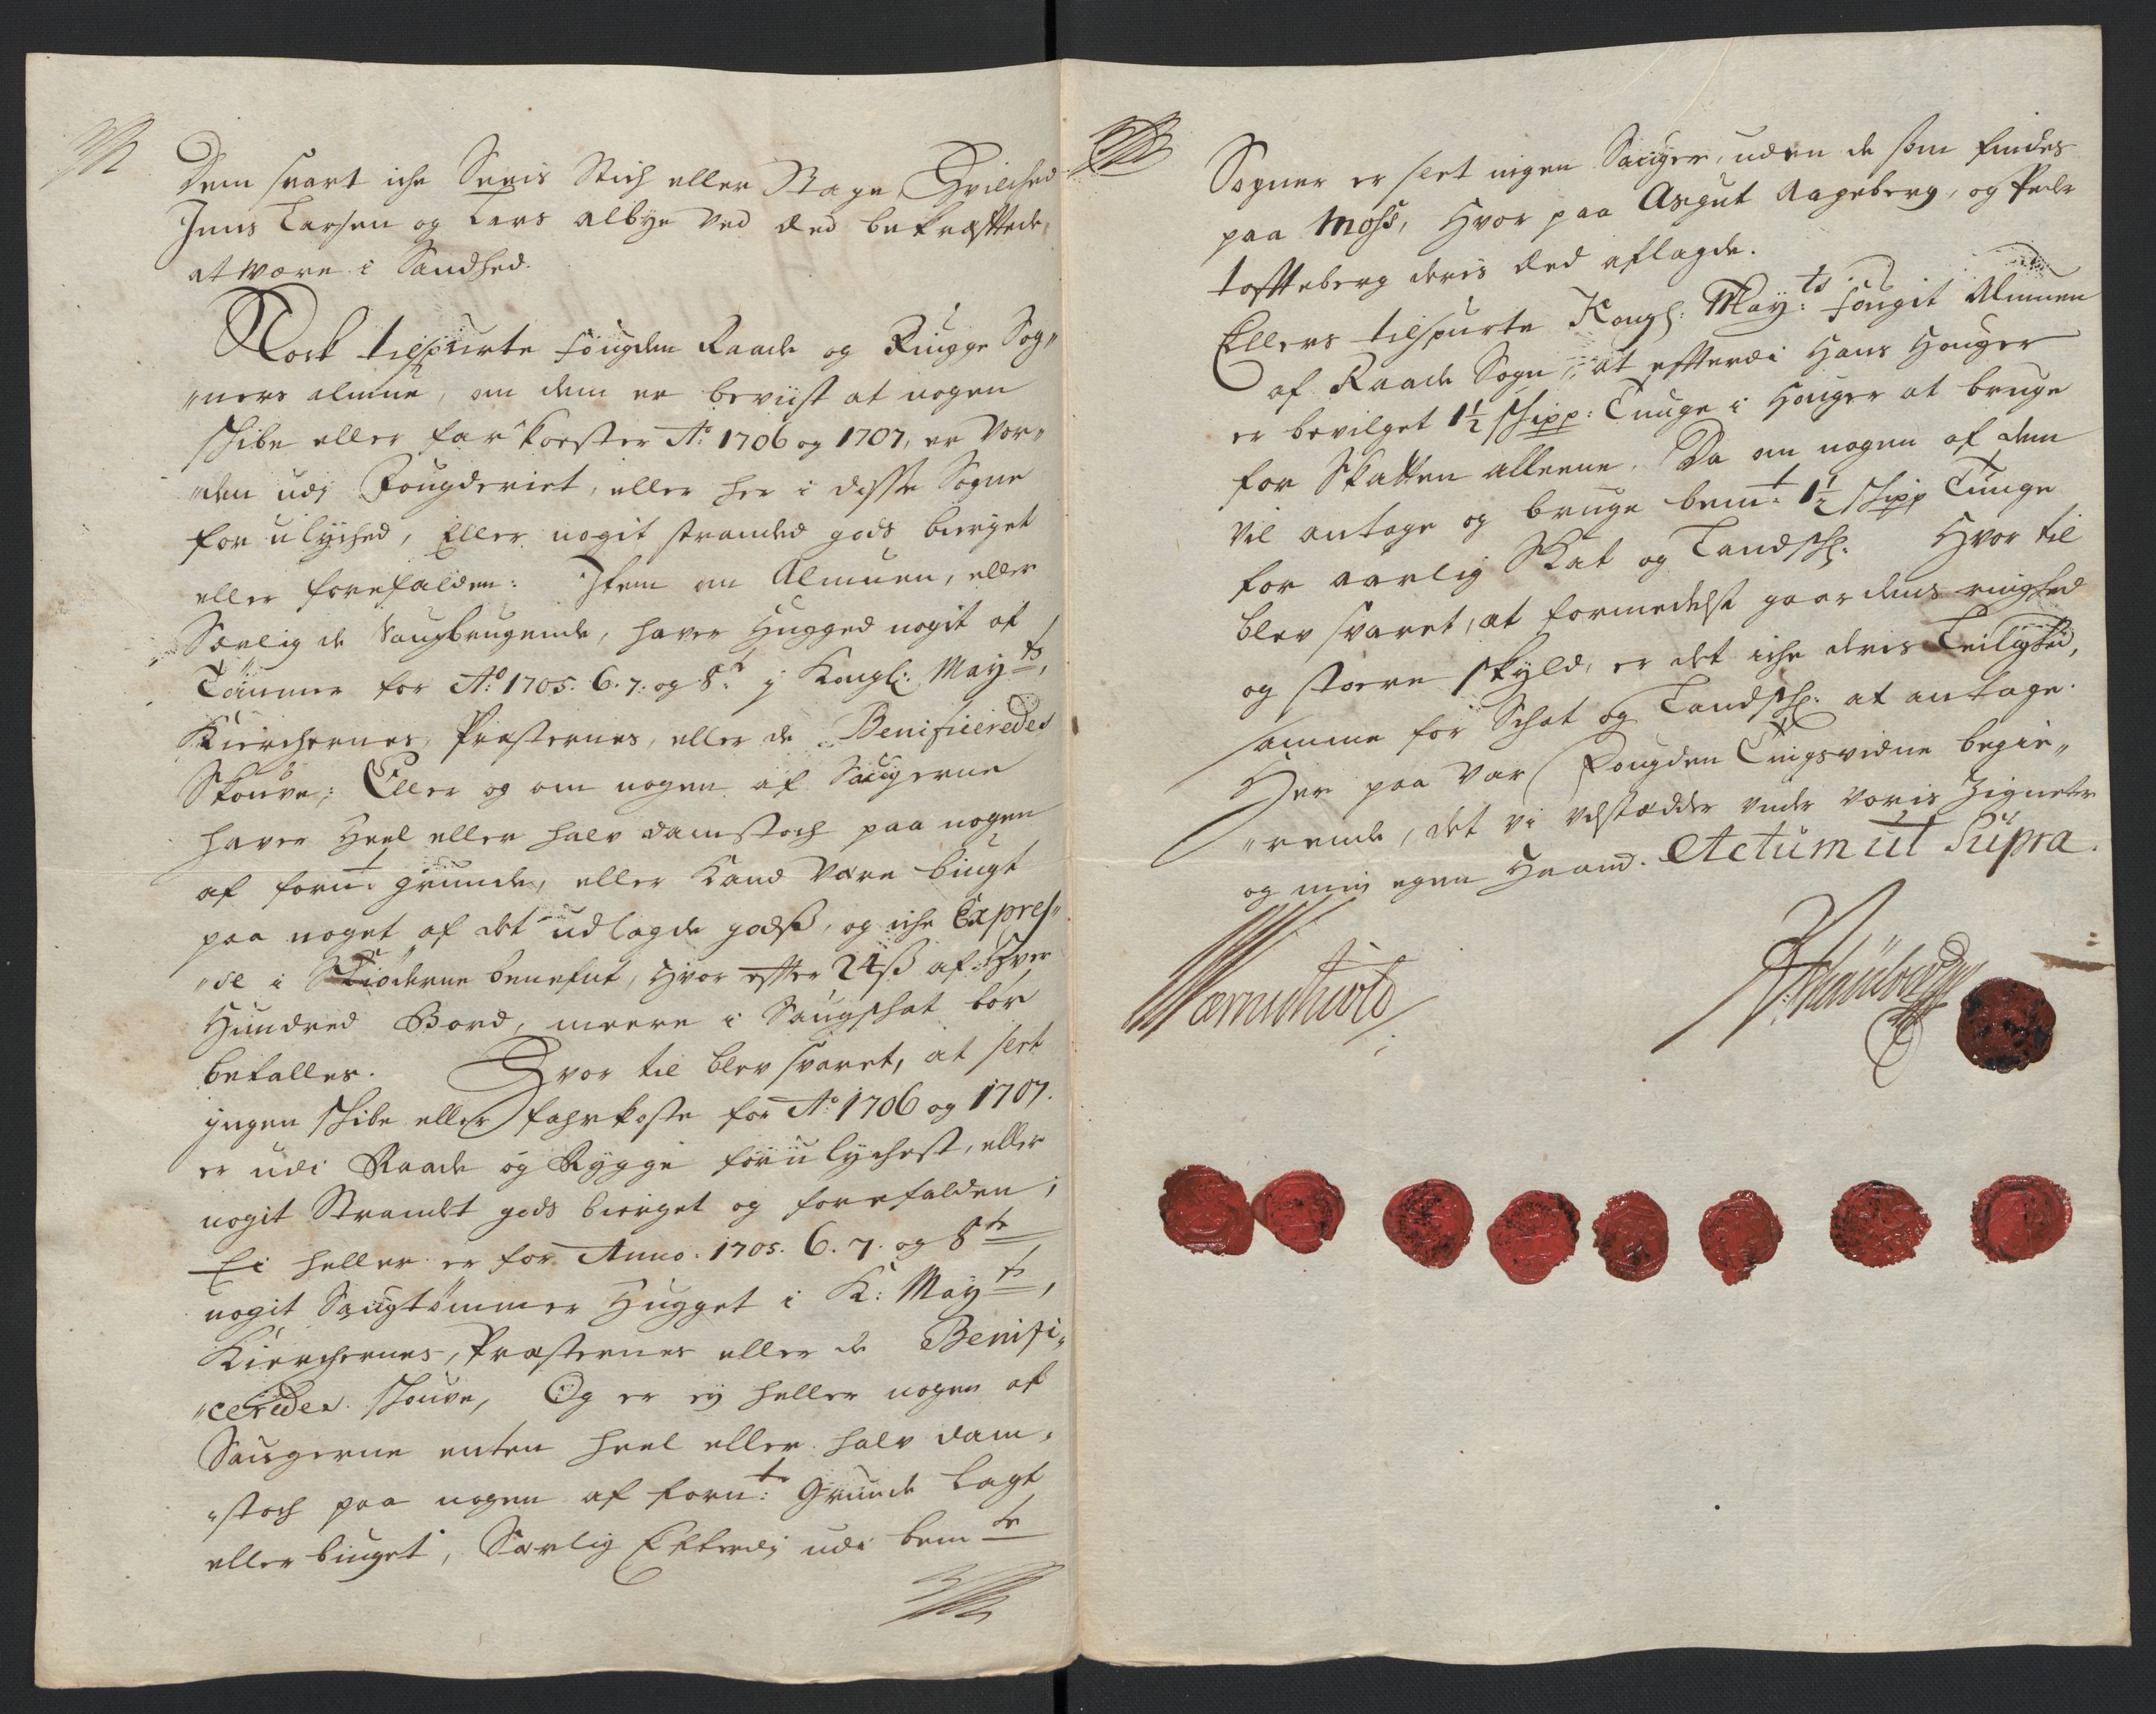 Dem svart iche Seeis Stich eller Bage, Hvilched
Jens Larsen og Lars Albye ved Eed bekræfttede,
at være i Sandhed.
Nock tilspurte fougden Raade og Rygge Sog„
„ners almue, om dem er beviist at nogen
Skibe eller farkorster Aº: 1706 og 1707, er vor„
„den udj Fougderiet, eller her i disse Sogne
forulyched, Eller nogit stranded gods bierget
eller forefalden: Item om Almuen, eller
Særlig de Saugbrugende, haver Hugged nogit af
Tømmer for Aº: 1705. 6. 7. og 8de j Kongl: Mayts,
Kierchernes, Præsternes, eller de Beneficeredes
Skouve; Eller og om nogen af Saugerne
haver Heel eller halv damstoch paa nogen
af fornte grunde, eller kand være biugt
paa noget af det udlagde godß, og iche Expres„
„se i Skiøderne benefnt, Hvor efter 24 ß af Hver
Hundred Bord, meere i Saugschat bør
betalles. Hvor til blev svaret, at slet
jngen skibe eller farkoste for Aº: 1706 og 1707.
er udi Raade og Rygge forulychest, eller
nogit Strandet gods bierget og forefalden;
Ei heller er for Anno. 1705. 6. 7. og 8de
nogit Saugtømmer Hugget i K: Mayts,
Kierchernes, Præsternes eller de Benifi„
„ceredes skouve, Og er ej heller nogen af
Saugerne enten heel eller halv dam„
„stoch paa nogen af fornte: Grunde lagt
eller biuget, Særlig Efterdj udi bemte
Sogner er slet ingen Sauger, uden de som findes
paa Moss, Hvor paa Asgut Aageberg, og Peder
Toffteberg deris Eed aflagde.
Ellers tilspurte Kongl: Mayts: fougit Almuen
af Raade Sogn, at effterdi Hans Houger
er bevilget 1½ skipp: Tunge i Houger at bruge
for Skatten alleene. Da om nogen af dem
vil antage og bruge bemte: 1½ skipp Tunge
for aarlig Skat og Landsch: Hvor til
blev svaret, at formedelst gaardens ringhed
og stoere skyld, er det iche deris Leilighed,
samme for Schat og Landsch: at antage.
Her paa var Fougden Tingsvidne begie„
„rende, det vi udstædder under voris Zigneter
og min egen Haand. Actum ut Supra.